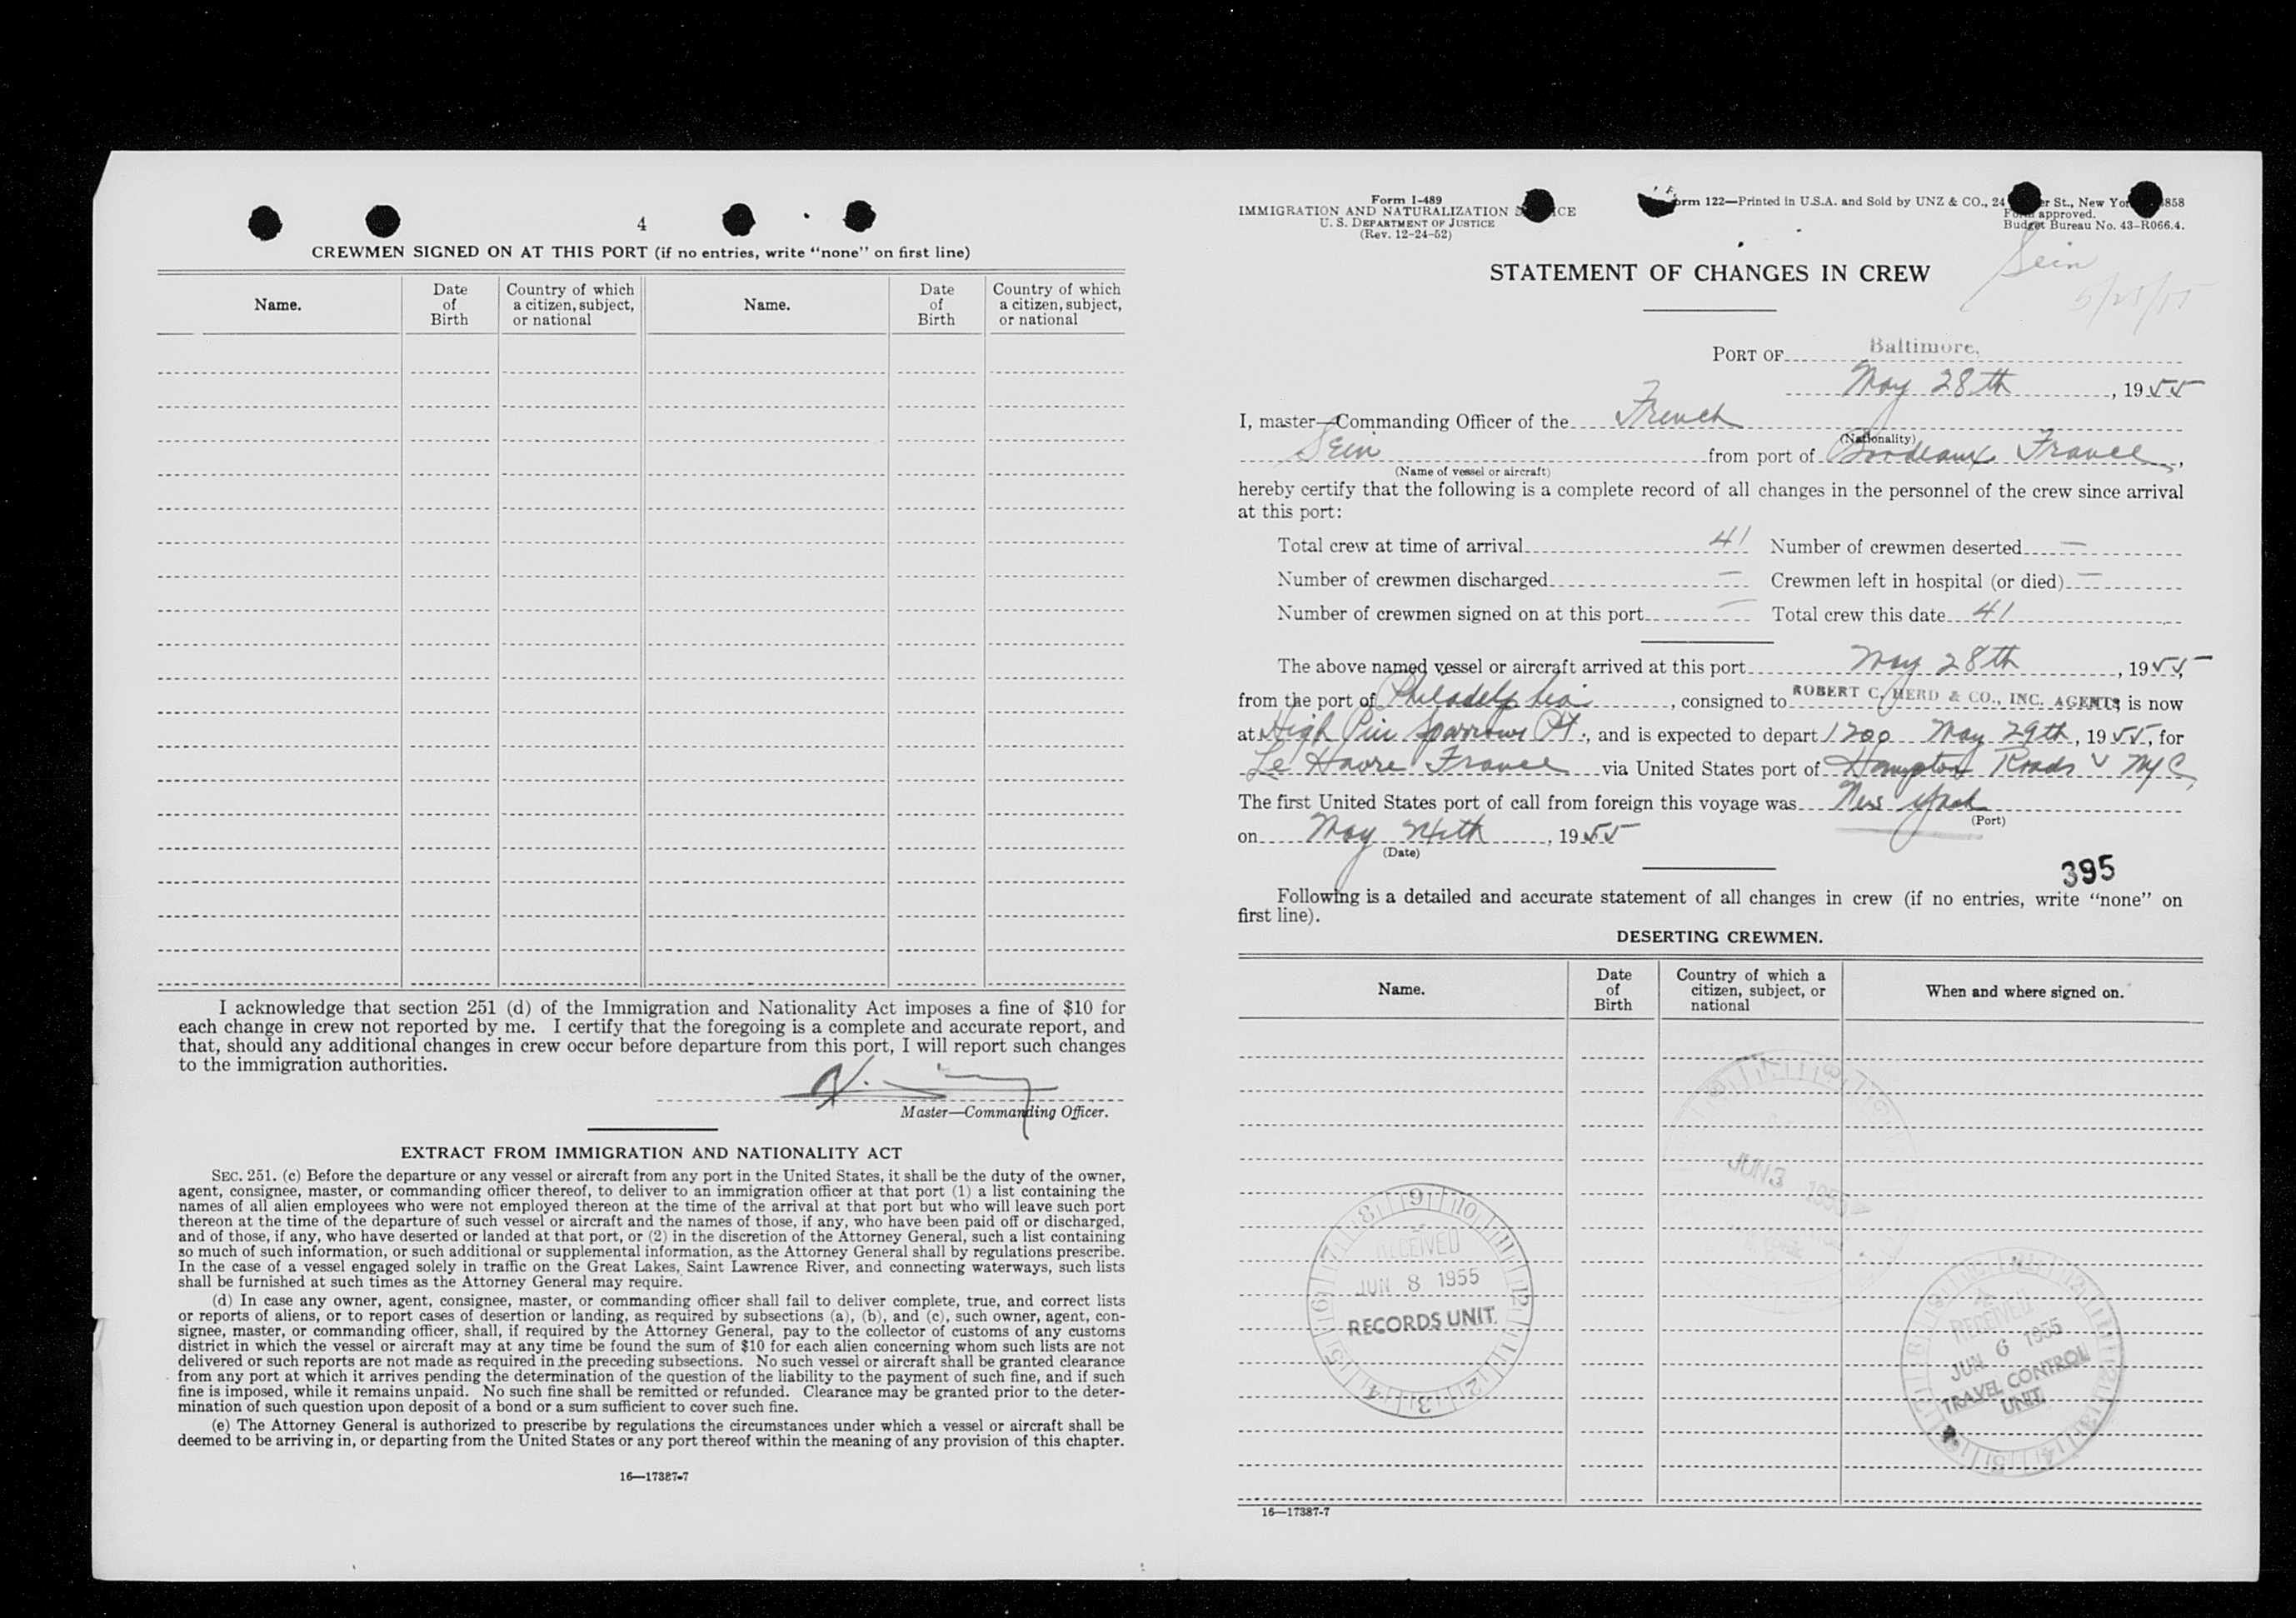 4
CREWMEN SIGNED ON AT THIS PORT (if no entries, write "none" on first line)
Name. Date of Birth Country of which a citizen, subject, or national Name. Date of Birth Country of which a citizen, subject, or national
I acknowledge that section 251 (d) of the Immigration and Nationality Act imposes a fine of $10 for
each change in crew not reported by me. I certify that the foregoing is a complete and accurate report, and
that, should any additional changes in crew occur before departure from this port, I will report such changes
to the immigration authorities.
Master—Commanding Officer.
EXTRACT FROM IMMIGRATION AND NATIONALITY ACT
SEC. 251. (c) Before the departure or any vessel or aircraft from any port in the United States, it shall be the duty of the owner,
agent, consignee, master, or commanding officer thereof, to deliver to an immigration officer at that port (1) a list containing the
names of all alien employees who were not employed thereon at the time of the arrival at that port but who will leave such port
thereon at the time of the departure of such vessel or aircraft and the names of those, if any, who have been paid off or discharged,
and of those, if any, who have deserted or landed at that port, or (2) in the discretion of the Attorney General, such a list containing
so much of such information, or such additional or supplemental information, as the Attorney General shall by regulations prescribe.
In the case of a vessel engaged solely in traffic on the Great Lakes, Saint Lawrence River, and connecting waterways, such lists
shall be furnished at such times as the Attorney General may require.
(d) In case any owner, agent, consignee, master, or commanding officer shall fail to deliver complete, true, and correct lists
or reports of aliens, or to report cases of desertion or landing, as required by subsections (a), (b), and (c), such owner, agent, con-
signee, master, or commanding officer, shall, if required by the Attorney General, pay to the collector of customs of any customs
district in which the vessel or aircraft may at any time be found the sum of $10 for each alien concerning whom such lists are not
delivered or such reports are not made as required in the preceding subsections. No such vessel or aircraft shall be granted clearance
from any port at which it arrives pending the determination of the question of the liability to the payment of such fine, and if such
fine is imposed, while it remains unpaid. No such fine shall be remitted or refunded. Clearance may be granted prior to the deter-
mination of such question upon deposit of a bond or a sum sufficient to cover such fine.
(e) The Attorney General is authorized to prescribe by regulations the circumstances under which a vessel or aircraft shall be
deemed to be arriving in, or departing from the United States or any port thereof within the meaning of any provision of this chapter.
16—17387-7
Form I-489
IMMIGRATION AND NATURALIZATION
U. S. DEPARTMENT OF JUSTICE
(Rev. 12-24-52)
122—Printed in U.S.A. and Sold by UNZ & CO., 24 St., New
approved.
Budget Bureau No. 43-R066.4.
Sein
STATEMENT OF CHANGES IN CREW
5/25/55
PORT OF Baltimore,
May 28th, 1955
I, master—Commanding Officer of the French
(Nationality)
Sein from port of Bordeaux France,
(Name of vessel or aircraft)
hereby certify that the following is a complete record of all changes in the personnel of the crew since arrival
at this port:
Total crew at time of arrival 41 Number of crewmen deserted —
Number of crewmen discharged — Crewmen left in hospital (or died) —
Number of crewmen signed on at this port — Total crew this date 41
The above named vessel or aircraft arrived at this port May 28th, 1955,
from the port of Philadelphia, consigned to ROBERT C. HERD & CO., INC. AGENTS is now
at High Pier Sparrows Pt., and is expected to depart 1200 May 29th, 1955, for
Le Havre France via United States port of Hampton Roads NYC
The first United States port of call from foreign this voyage was New York
(Port)
on May 24th, 1955
(Date)
395
Following is a detailed and accurate statement of all changes in crew (if no entries, write "none" on
first line).
DESERTING CREWMEN.
Name. Date of Birth Country of which a citizen, subject, or national When and where signed on.
JUN 3 1955
RECEIVED
JUN 8 1955
RECORDS UNIT
RECEIVED
JUN 6 1955
TRAVEL CONTROL
UNIT
16—17387-7